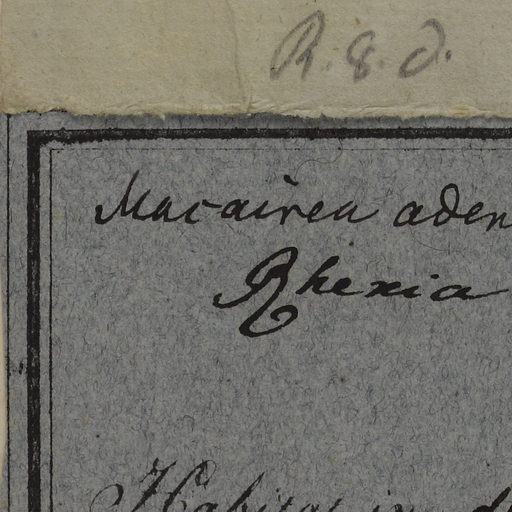 R. 8. d.
Macairea aden
Rhexia
Habitat in